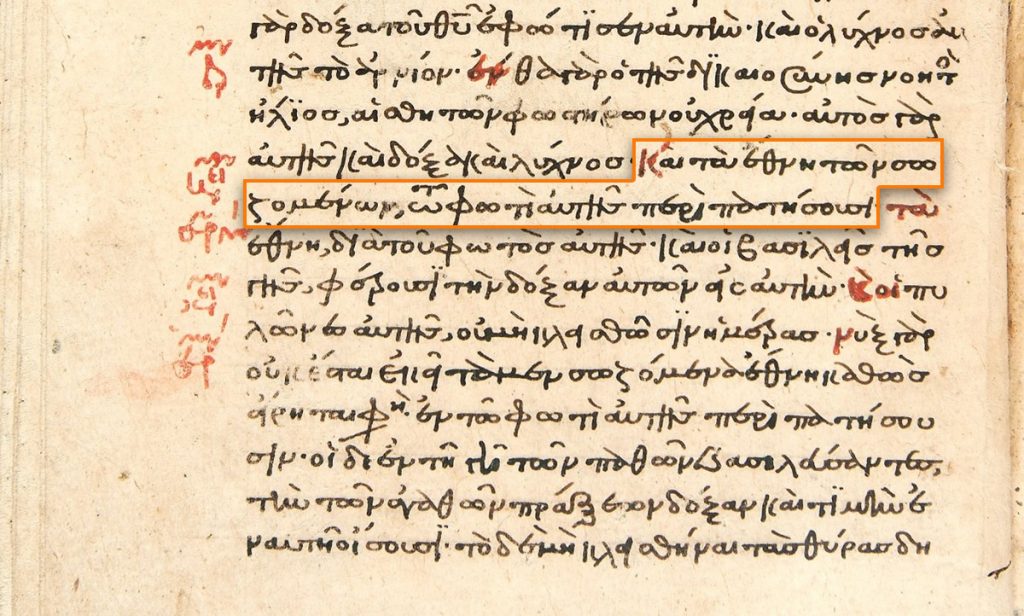 γὰρ δόξα τοῦ θυ ἐφώτισεν αὐτήν· καὶ ὁ λύχνος αὐ
τῆς τὸ ἀρνίον· ἐνθα γὰρ ὁ τῆς δικαιοσύνης νοητὸ
ἥλιος, αἰσθητῶν φωστήρων οὐ χρεία· αὐτὸς γὰρ
αὐτῆς καὶ δόξα καὶ λύχνος· Καὶ τὰ ἔθνη τῶν σω
ζομένων, τῶ φωτὶ αὐτῆς περιπατήσουσι τὰ
ἔθνη, διὰ τοῦ φωτὸς αὐτῆς· καὶ οἱ βασιλεῖς τῆς
γῆς, φέρουσι τὴν δόξαν αὐτῶν εἰς αὐτήν· Κ οἱ πυ
λῶνες αὐτῆς, οὐ μὴ κλεισθῶσιν ἡμέρας· νὺξ γὰρ
οὐκ ἔσται ἐκεῖ τὰ μεν σωζόμενα ἔθνη καθὼς
εἴρηται φη· ἐν τῶ φωτὶ αὐτῆς περιπατήσου
σιν· οἱ δὲ ἐν τῆ γῆ τῶν παθῶν βασιλεύσαντες,
τὴν τῶν ἀγαθῶν πράξεων δόξαν καὶ τιμὴν ἐ
ν αὐτῆ οἴσουσι· τὸ δὲ μὴ κλεισθῆναι τὰς θύρας δη